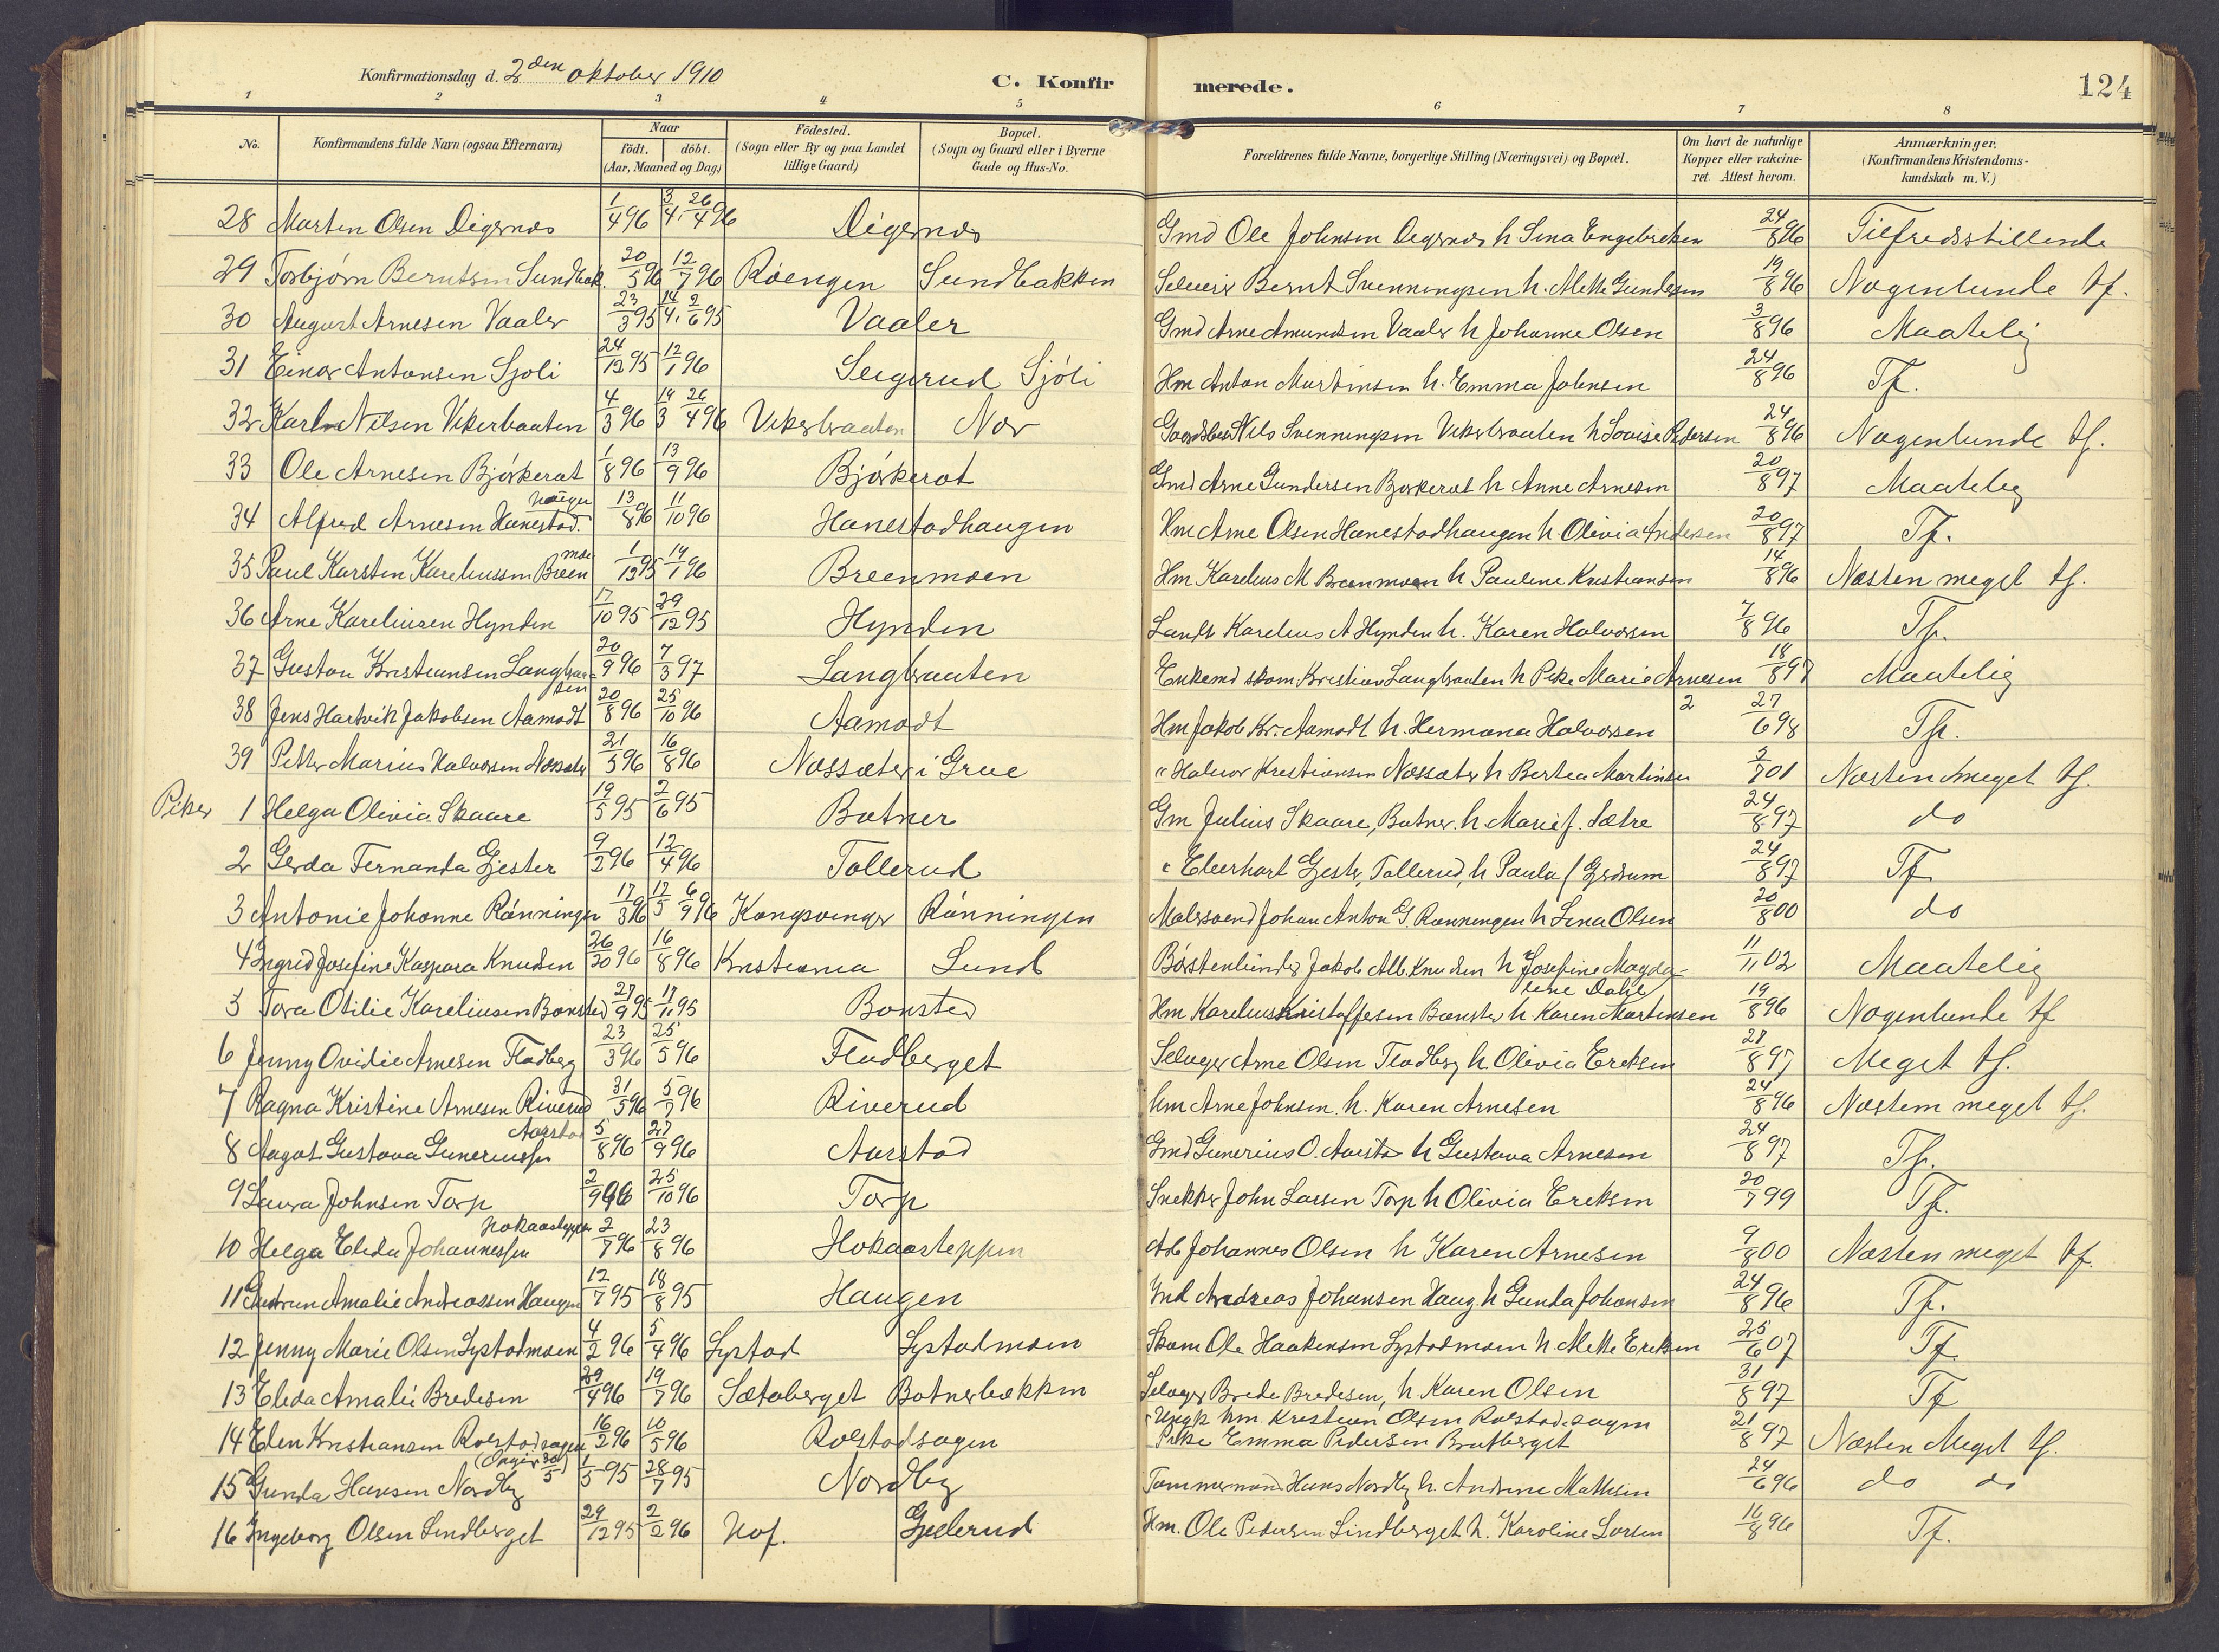 Konfirmationsdag d. 2den oktober 1910
C. Konfirmerede.
124
1 2 3 4 5 6 7 8
No. Konfirmandens fulde Navn (ogsaa Efternavn) Naar Födt. döbt. (Aar, Maaned og Dag) Födested. (Sogn eller By og paa Landet tillige Gaard) Bopæl. (Sogn og Gaard eller i Byerne Gade og Hus-No. Forældrenes fulde Navne, borgerlige Stilling (Næringsvei) og Bopæl. Om havt de naturlige Kopper eller vakcineret. Attest herom. Anmærkninger. (Konfirmandens Kristendomskundskab m. V.)
28 Marten Olsen Digernæs 1/4 96 3/4, 26/4 96 Digernæs Gmd Ole Johnsen Degernes h. Lina Engebretsen 24/8 96 Tilfredsstillende
29 Torbjørn Berntsen Sundbak. 20/5 96 12/7 96 Röengen Sundbakken Seleier Bernt Svenningsen h. Mette Gundersen 19/8 96 Nogenlunde tf.
30 August Arnesen Vaaler 23/3 95 14/4, 2/6 95 Vaaler Gmd Arne Amundsen Vaaler h Johanne Olsen 3/8 96 Maatelig
31 Einar Antonsen Sjöli 24/12 95 12/1 96 Seigerud Sjöli Hm Anton Martinsen h. Emma Johnsen 24/8 96 Tf.
32 Karl Nilsen Vikerbraaten 4/3 96 19/3 26/4 96 Vikerbraaten Nor Gaardsbest Nils Svenningsen Vikerbraaten h Lovise Pedersen 24/8 96 Nogenlunde tf.
33 Ole Arnesen Björkerot 1/8 96 13/9 96 Björkerot Gmd Arne Gundersen Bjorkerot h Anne Arnesen 20/8 97 Maatelig
34 Alfred Arnesen Hanestad haugen 13/8 96 11/10 96 Hanestadhaugen Hm Arne Olsen Hanestadhaugen h. Olivia Andersen 20/8 97 Tf.
35 Paul Karsten Kareliussen Breenmoen 1/12 95 14/1 96 Breenmoen Hm Karelius M Breenmoen h Pauline Kristiansen 14/8 96 Næsten meget tf.
36 Arne Kareliusen Hynden 17/10 95 29/12 95 Hynden Landh Karelius A Hynden h. Karen Halvorsen 7/8 96 Tf.
37 Gustav Kristiansen Langbraaten 20/9 96 7/3 97 Langbraaten Enkemd skom. Kristian Langbraaten h Pike Marie Arnesen 18/8 97 Maatelig
38 Jens Hartvik Jakobsen Aamodt 20/8 96 25/10 96 Aamodt Hm Jakob Kr. Aamodt h. Hermana Halvorsen 2 27/6 98 Tf.
39 Petter Marius Halvorsen Næssæter 21/5 96 16/8 96 Næssæter i Grue " Halvor Kristiansen Næssæter h Bertea Martinsen 2/7 01 Næsten meget tf.
Piker 1 Helga Olivia Skaare 19/5 95 2/6 95 Botner Gm Julius Skaare, Botner. h. Marie f. Sætre 24/8 97 do
2 Gerda Fernanda Gjester 9/2 96 12/4 96 Tollerud " Eberhart Gjester, Tollerud, h Paula f Gjedrum 24/8 97 Tf
3 Antonie Johanne Rönningen 17/3 96 12/5 6/9 96 Kongsvinger Rönningen Malersvend Johan Anton G. Rönningen h Lina Olsen 20/8 00 do
4 Ingrid Josefine Kaspara Knudsen 26/10 96 16/8 96 Kristiania Lund Börstenbinder Jakob Alb. Knudsen h Josefine Magdalene Dahl 11/11 02 Maatelig
5 Tora Otilie Kareliusen Bonsted 29/9 95 17/11 95 Bonsted Hm Karelius Kristoffersen Bonsted h. Karen Martinsen 19/8 96 Nogenlunde tf
6 Jenny Ovidie Arnesen Fladberg 23/3 96 25/5 96 Fladberget Seleger Arne Olsen Fladberg h. Olivia Eriksen 28/8 97 Meget tf.
7 Ragna Kristine Arnesen Riverud 31/5 96 5/7 96 Riverud hm Arne Johnsen h. Karen Arnesen 24/8 96 Næstem meget tf.
8 Aagot Gustava Guneriussen Aarstad 5/8 96 27/9 96 Aarstad Gmd Gunerius O. Aarstad h Gustava Arnesen 24/8 97 Tf.
9 Laura Johnsen Torp 2/9 96 25/10 96 Torp Snekker John Larsen Torp h Olivia Eriksen 20/7 99 Tf.
10 Helga Elida Johannessen Hokaasteppen 2/7 96 23/8 96 Hokaasteppen Arb Johannes Olsen h Karen Arnesen 9/8 00 Næsten meget tf.
11 Gudrun Amalie Andreassen Haugen 12/7 95 18/8 95 Haugen Ind Andreas Johansen Haug. h Gunda Johansen 24/8 96 Tf.
12 Jenny Marie Olsen Lystadmoen 4/2 96 5/4 96 Lystad Lystadmoen Skom Ole Haakensen Lystadmoen h. Mette Eriksen 25/6 07 Tf
13 Elida Amalie Bredesen 29/4 96 19/7 96 Sætaberget Botnerbækken Seleger Brede Bredesen, h. Karen Olsen 31/8 97 Tf
14 Elen Kristiansen Rolstadsagen 16/2 96 10/5 96 Rolstadsagen Ungk hm. Kristian Olsen Rolstadsagen Pike Emma Pedersen Bratberget 21/8 97 Næsten Meget tf.
15 Gunda Hansen Nordby (Opgir 30/5) 1/5 95 28/7 95 Nordby Tømmermand Hans Nordby h. Andrine Mathisen 24/6 96 do do
16 Ingeborg Olsen Lindberget 29/12 95 2/2 96 Hof. Gjelerud Hm. Ole Pedersen Lindberget h. Karoline Larsen 16/8 96 Tf.